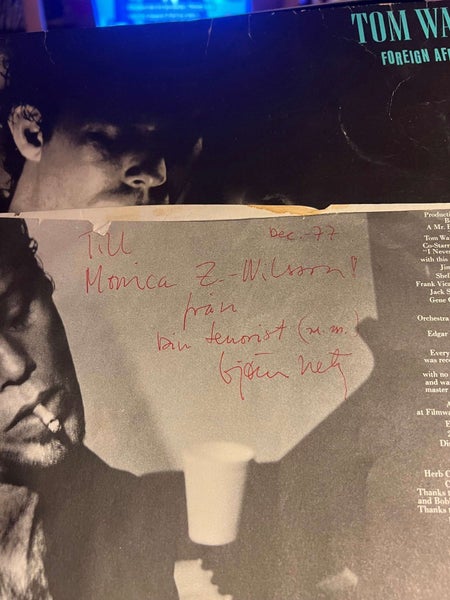 TOM WA
FOREIGN AF
Till Dec. -77
Monica Z.-Nilsson!
från
din tenorist (m.m.)
Björn Netz
Producti
A Mr. B
Tom Wa
Co-Starr
"I Never
with this
Jim
Shel
Frank Vica
Jack S
Gene C
Orchestra
Edgar
Every
was reco
with no
and wa
master
at Filmwa
Herb C
Thanks t
and Bob
Thanks t